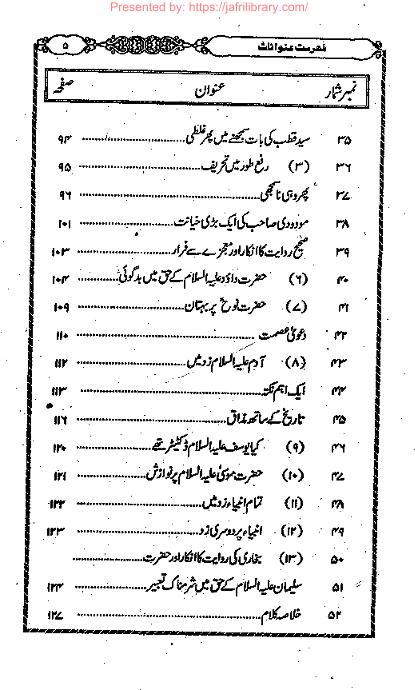 Presented by: https://jafrilibrary.com/
فہرست عنوانات ۵
نمبر شمار عنوان صفحہ
۳۵ سید قطب کی بات سمجھنے میں پھر غلطی ۹۴
۳۶ (۳) رفع طور میں تحریف ۹۵
۳۷ پھر وہی نا سمجھی ۹۶
۳۸ مودودی صاحب کی ایک بڑی خیانت ۱۰۱
۳۹ صحیح روایت کا انکار اور معجزے سے فرار ۱۰۳
۴۰ (۶) حضرت داؤد علیہ السلام کے حق میں بدگوئی ۱۰۴
۴۱ (۷) حضرت نوحؑ پر بہتان ۱۰۹
۴۲ دعویٰ عصمت ۱۱۰
۴۳ (۸) آدم علیہ السلام زد میں ۱۱۲
۴۴ ایک اہم نکتہ ۱۱۳
۴۵ تاریخ کے ساتھ مذاق ۱۱۶
۴۶ (۹) کیا یوسف علیہ السلام ڈکٹیٹر تھے ۱۲۰
۴۷ (۱۰) حضرت موسیٰ علیہ السلام پر نوازش ۱۲۱
۴۸ (۱۱) تمام انبیاء زد میں ۱۲۲
۴۹ (۱۲) انبیاء پر دوسری زد ۱۲۳
۵۰ (۱۳) بخاری کی روایت کا انکار اور حضرت
۵۱ سلیمان علیہ السلام کے حق میں شرمناک تعبیر ۱۲۴
۵۲ خلاصہ کلام ۱۲۷